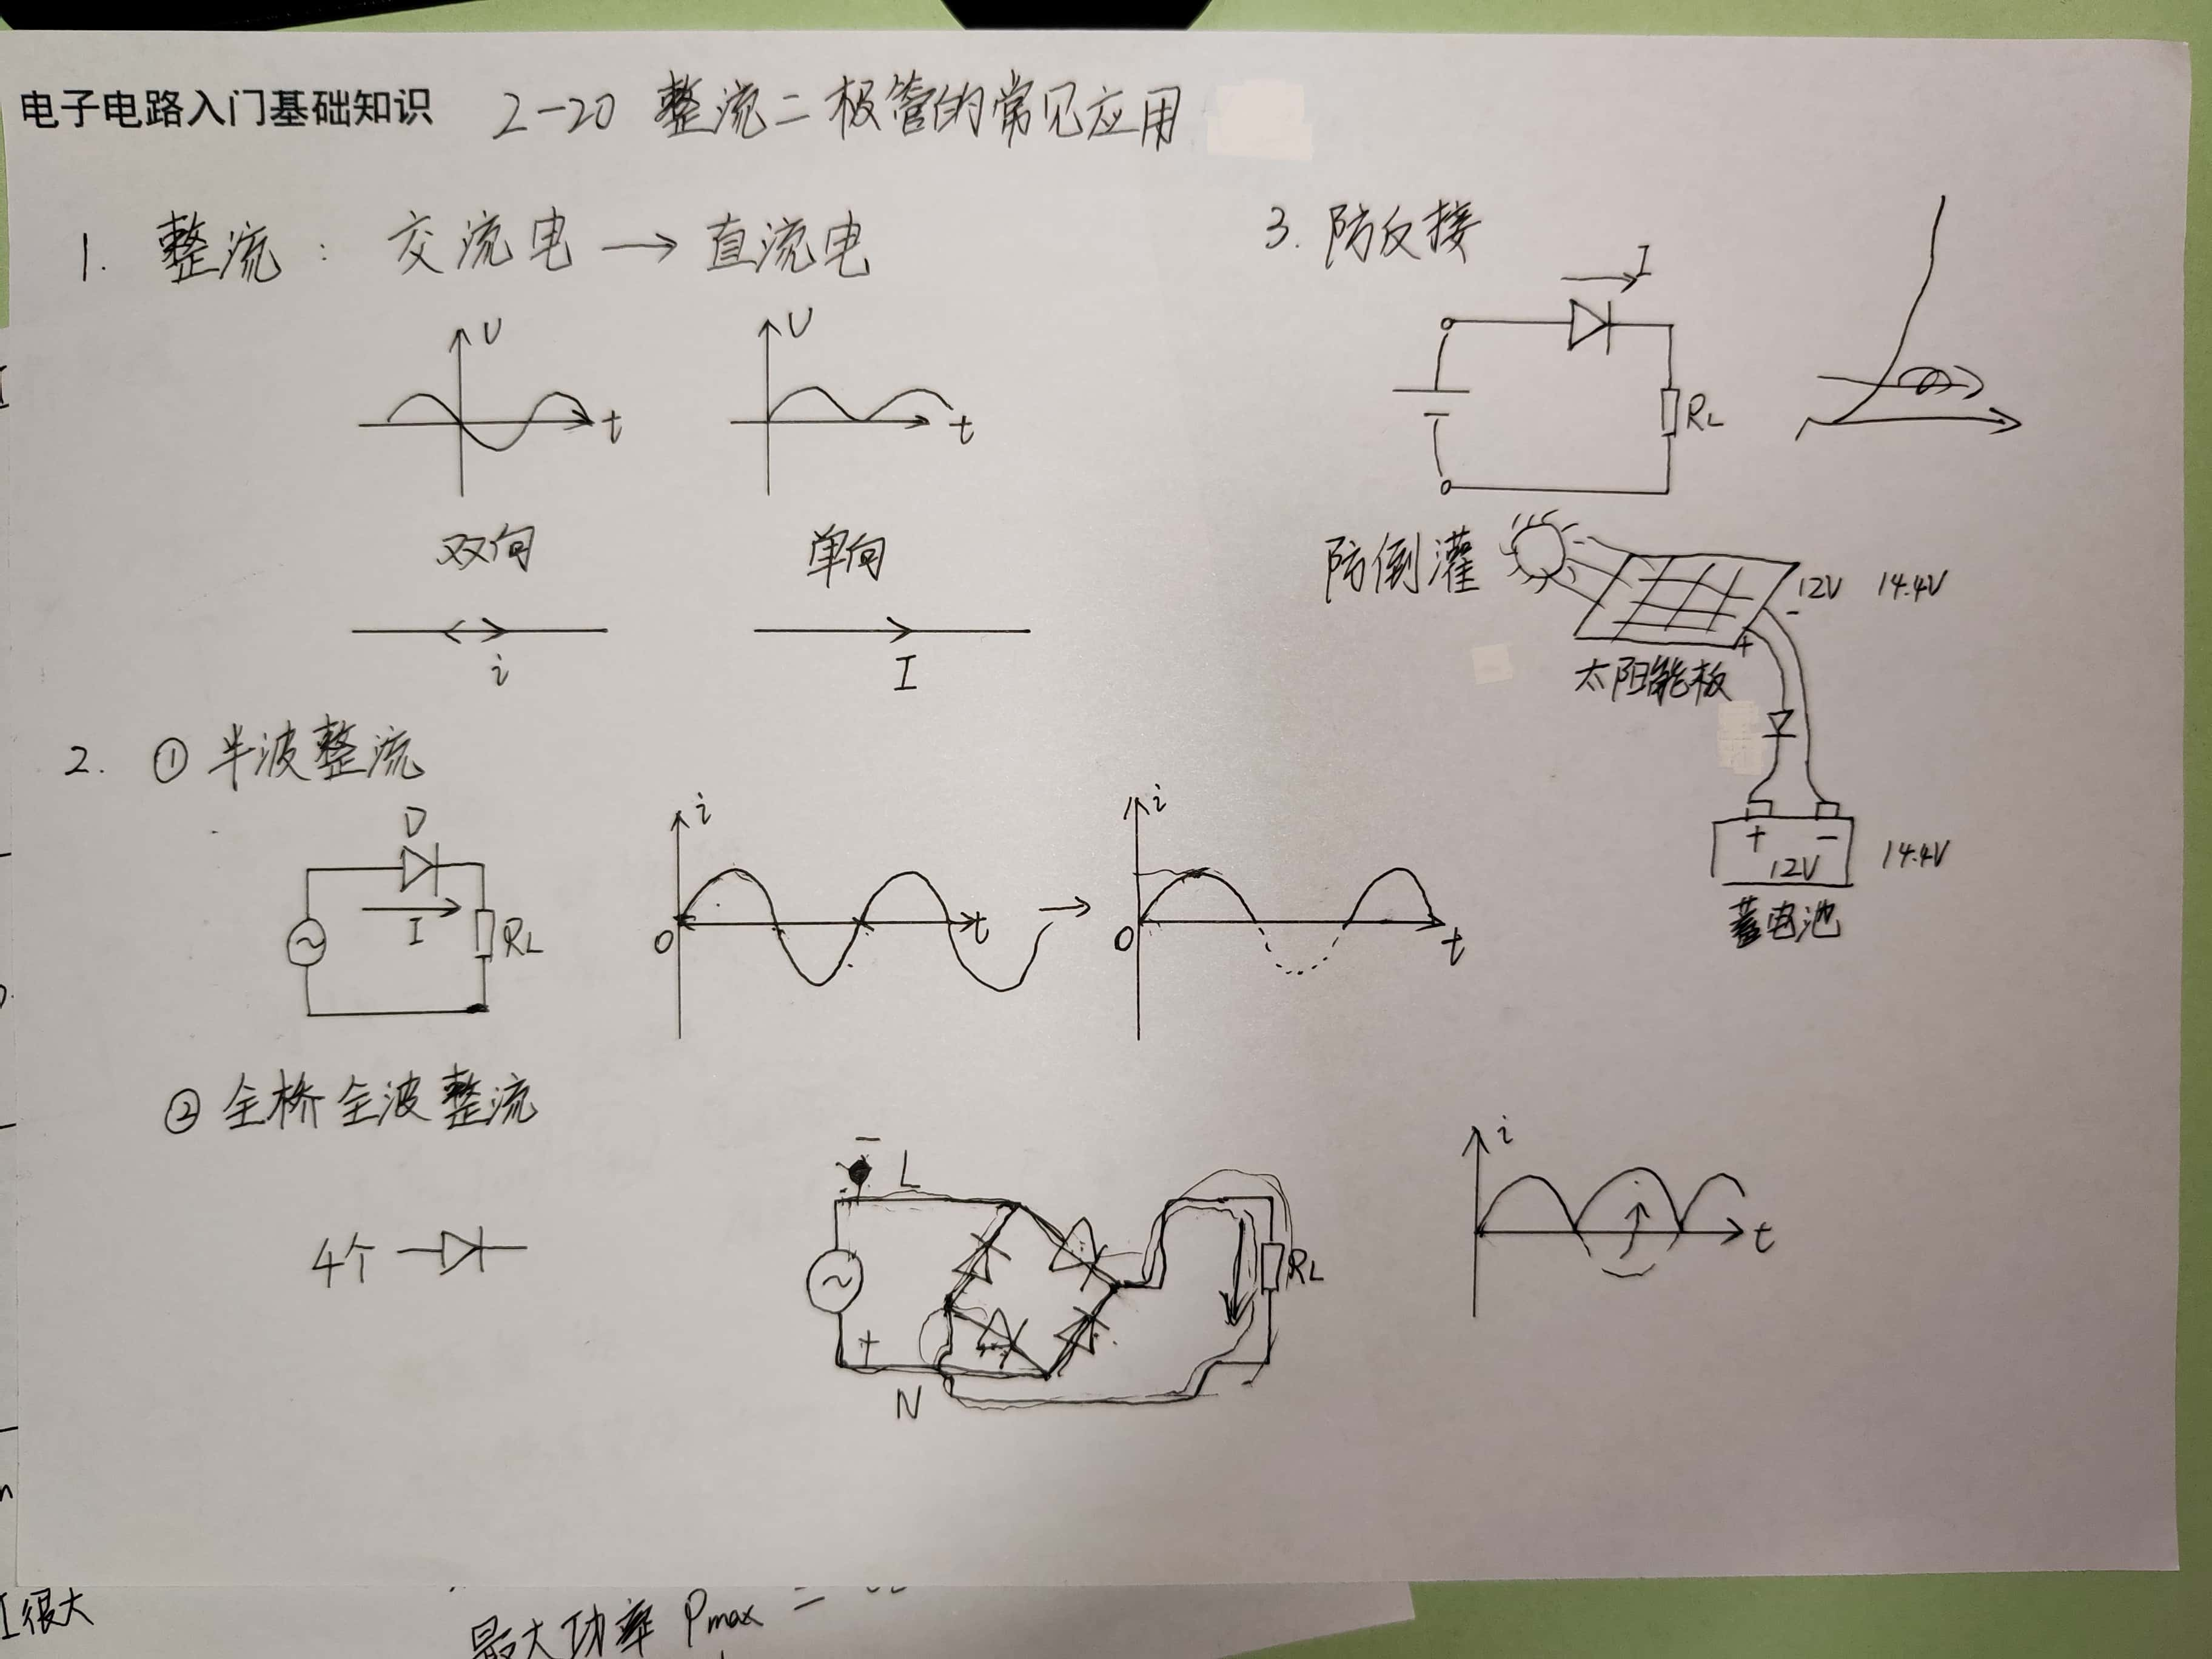 电子电路入门基础知识 2-20 整流二极管的常见应用
1. 整流: 交流电 → 直流电
U
t
U
t
双向
单向
i
I
2. ① 半波整流
D
I
RL
i
O
t
→
i
O
t
② 全桥全波整流
4个
-
L
+
N
RL
i
t
3. 防反接
I
RL
防倒灌
12V 14.4V
-
+
太阳能板
+ -
12V
14.4V
蓄电池
I很大
最大功率 Pmax =